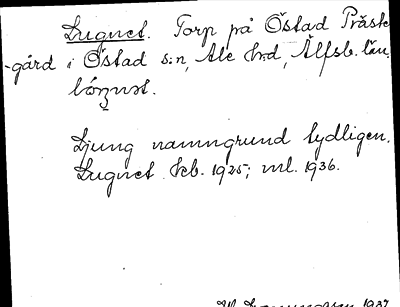 Lugnet. Torp på Östad Präste
-gård i Östad s:n, Ale hrd, Älfsb. län.
Ljung namngrund tydligen.
Lugnet kb. 1925; ml. 1936.
1937